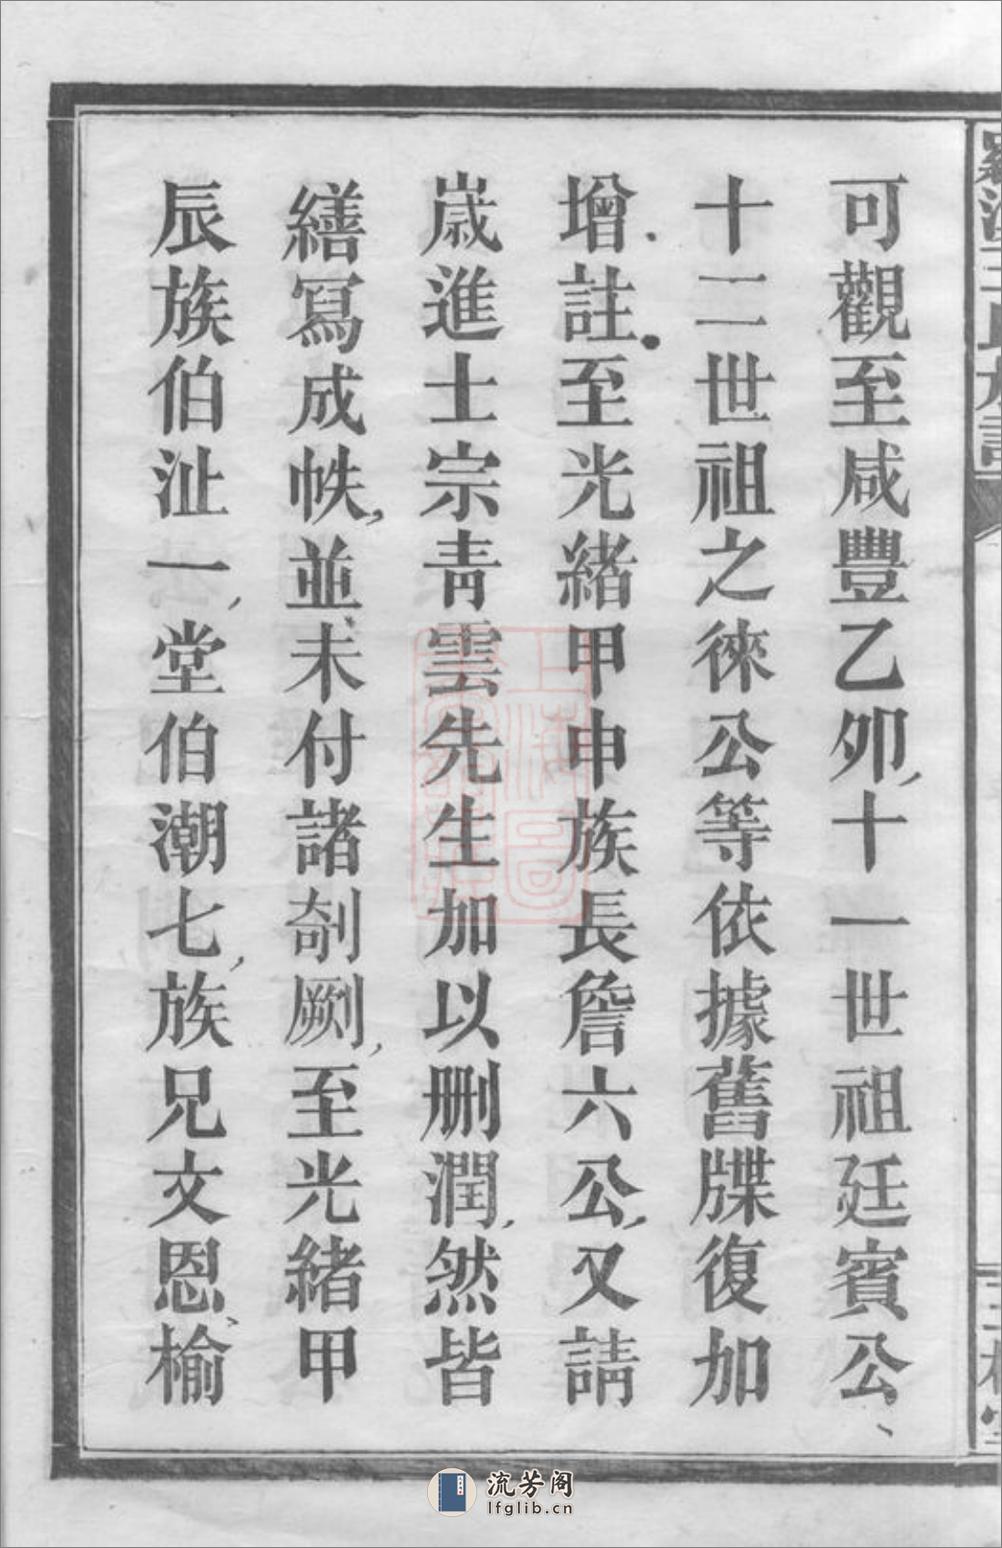 可觀至咸豐乙卯，十一世祖廷賓公、
十二世祖之徠公等依據舊牒復加
增註．至光緒甲申族長詹六公，又請
歲進士宗青雲先生加以刪潤，然皆
繕寫成帙，並、未付諸剞劂，至光緒甲
辰族伯沚一，堂伯潮七，族兄文恩、榆
流芳阁
lfglib.cn